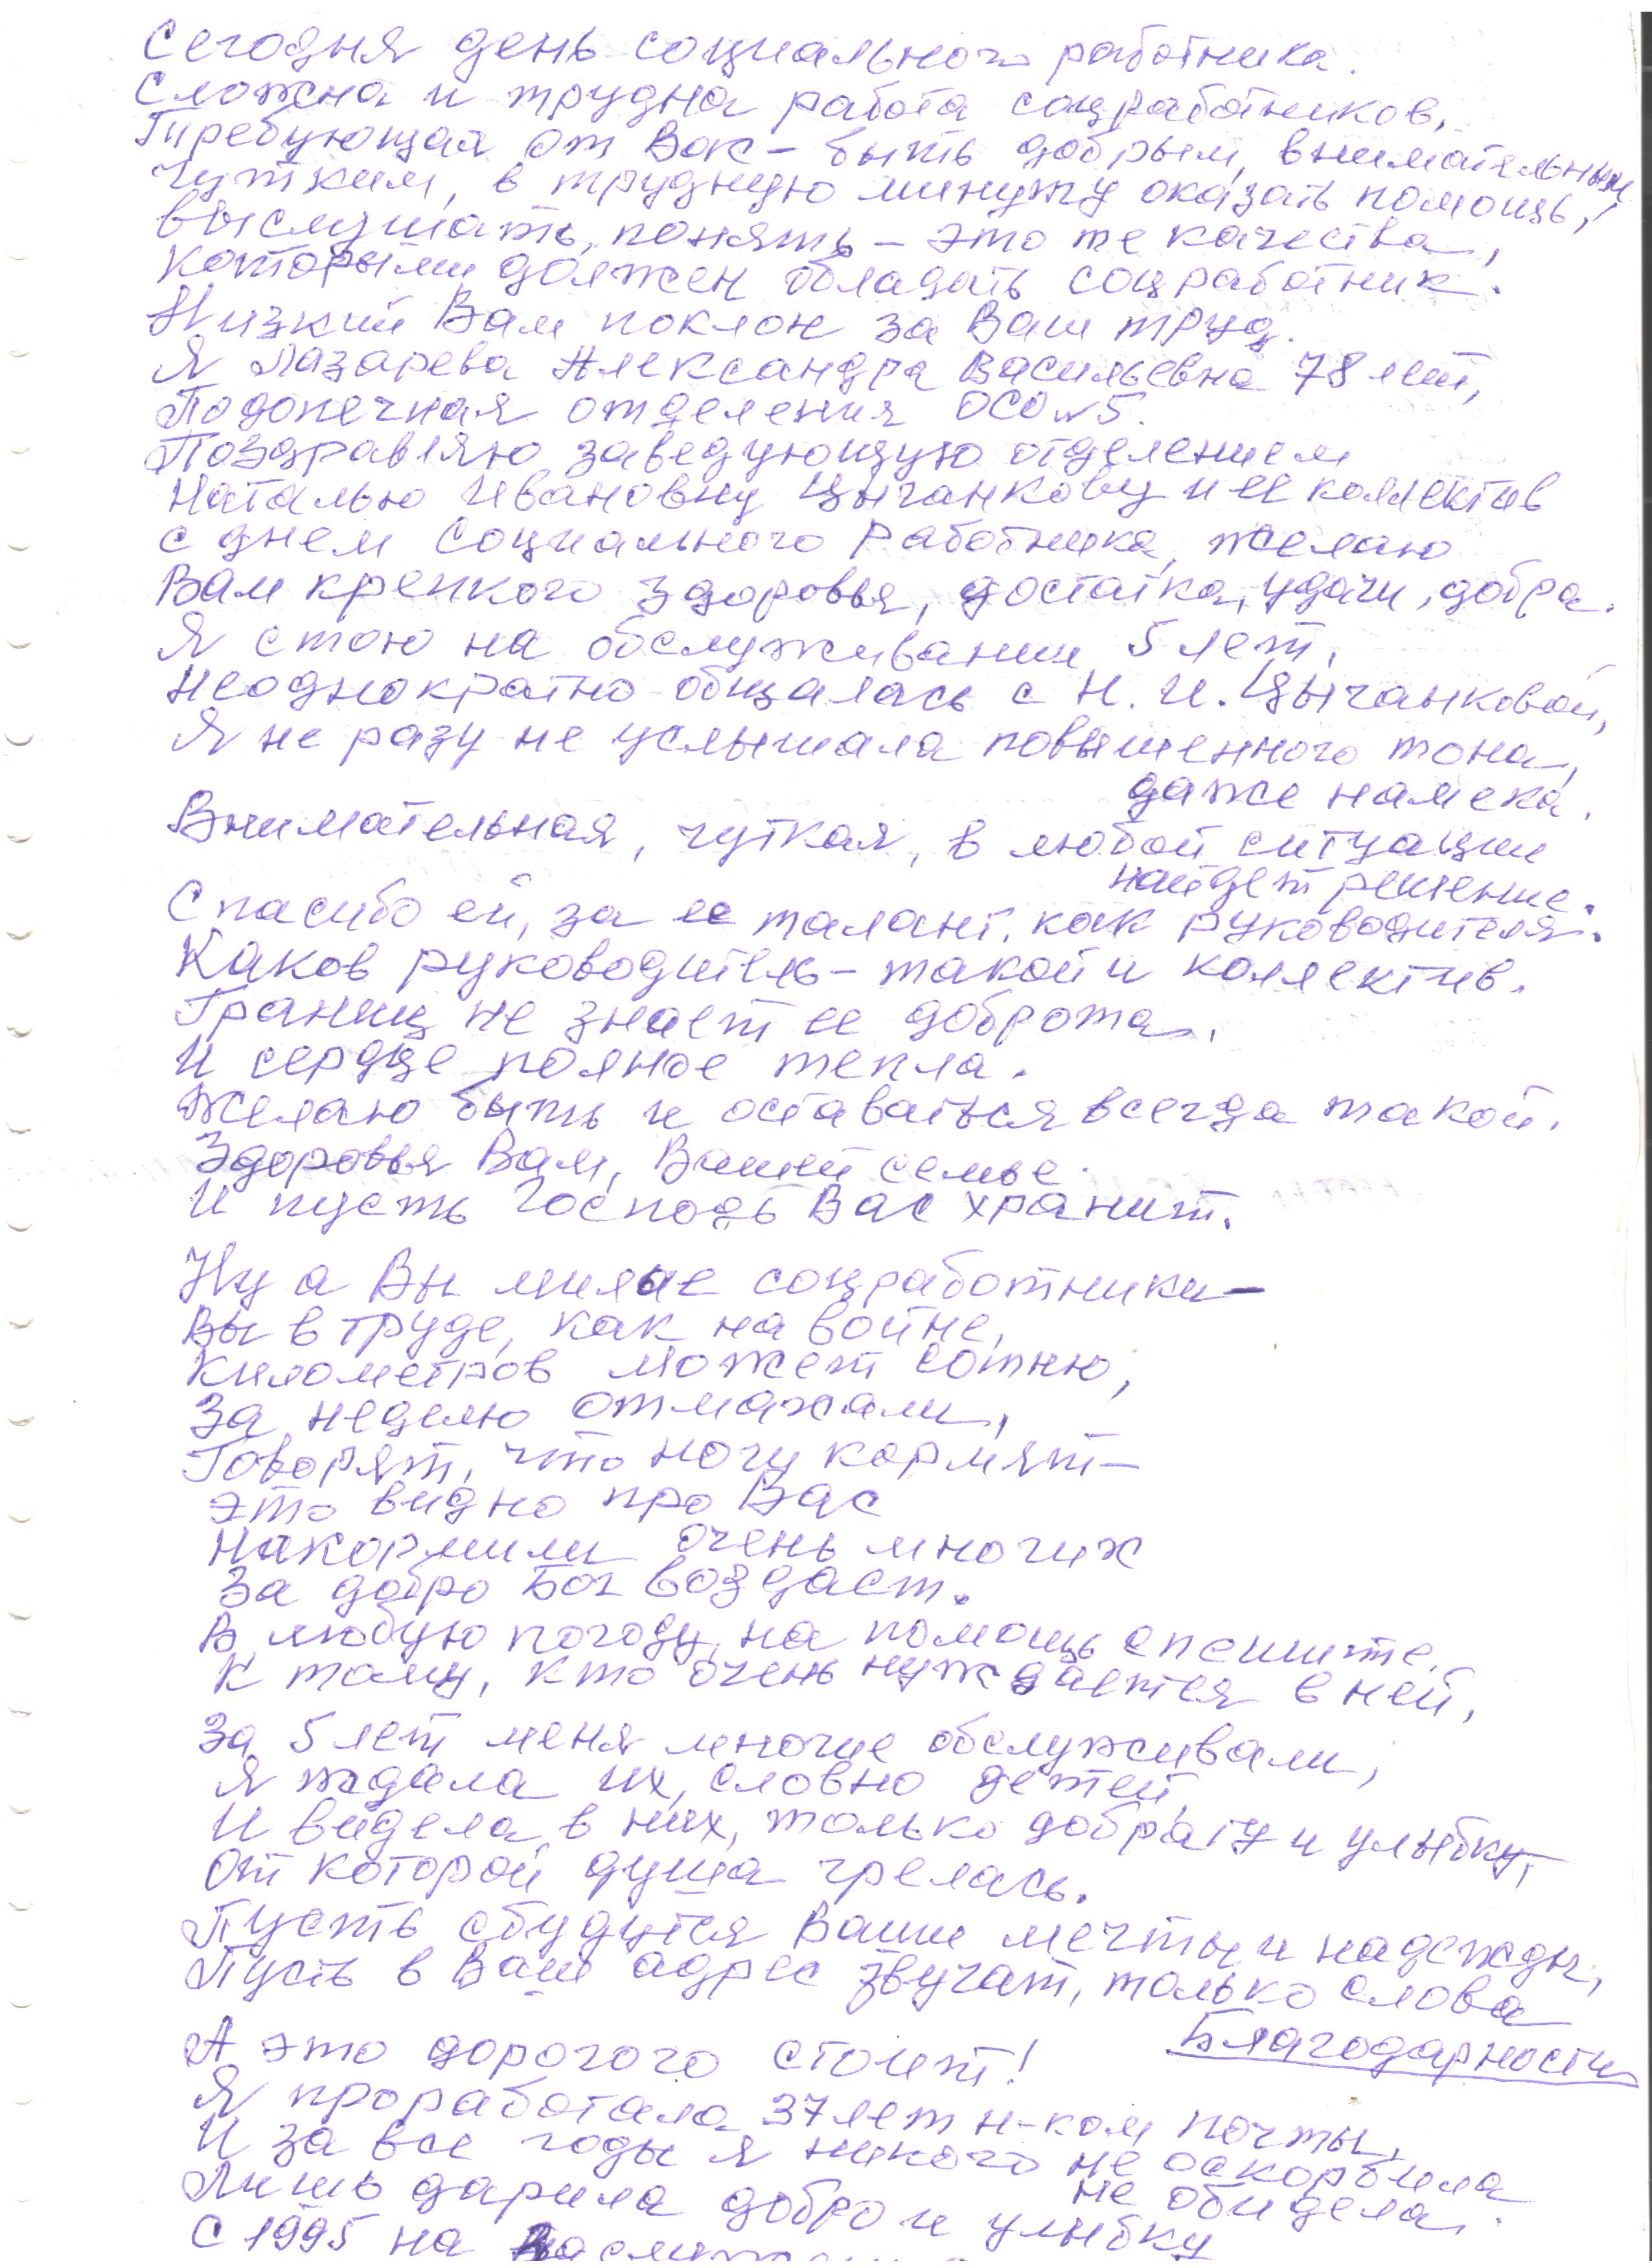 Сегодня день социального работника.
Сложна и трудна работа соцработников,
Требующая от Вас – быть добрым, внимательным
чутким, в трудную минуту оказать помощь,
выслушать, понять – это те качества,
которыми должен обладать соцработник.
Низкий Вам поклон за Ваш труд.
Я Лазарева Александра Васильевна 78 лет,
Подопечная отделения ОСО №5.
Поздравляю заведующую отделением
Наталью Ивановну Цыганкову и ее коллектив
с днем Социального Работника, желаю
Вам крепкого здоровья, достатка, удачи, добра.
Я стою на обслуживании 5 лет,
неоднократно общалась с Н. И. Цыганковой,
Я не разу не услышала повышенного тона,
даже намека.
Внимательная, чуткая, в любой ситуации
найдет решение.
Спасибо ей, за ее талант, как руководителя.
Каков руководитель – такой и коллектив.
Границ не знает ее доброта,
И сердце полное тепла.
Желаю быть и оставаться всегда такой.
Здоровья Вам, Вашей семье.
И пусть Господь Вас хранит.
Ну а Вы милые соцработники –
Вы в труде, как на войне,
Километров может сотню,
За неделю отмахали,
Говорят, что ногу кормят –
это видно про Вас
Накормили очень многих
За добро Бог воздаст.
В любую погоду, на помощь спешите,
К тому, кто очень нуждается в ней,
За 5 лет меня многие обслуживали,
Я ждала их, словно детей,
И видела в них, только доброту и улыбку,
От которой душа грелась.
Пусть сбудутся Ваши мечты и надежды,
Пусть в Ваш адрес звучат, только слова
Благодарности
А это дорогого стоит!
Я проработала 37 лет н-ком почты,
И за все годы я никого не оскорбила
не обидела.
Лишь дарила добро и улыбку
С 1995 на